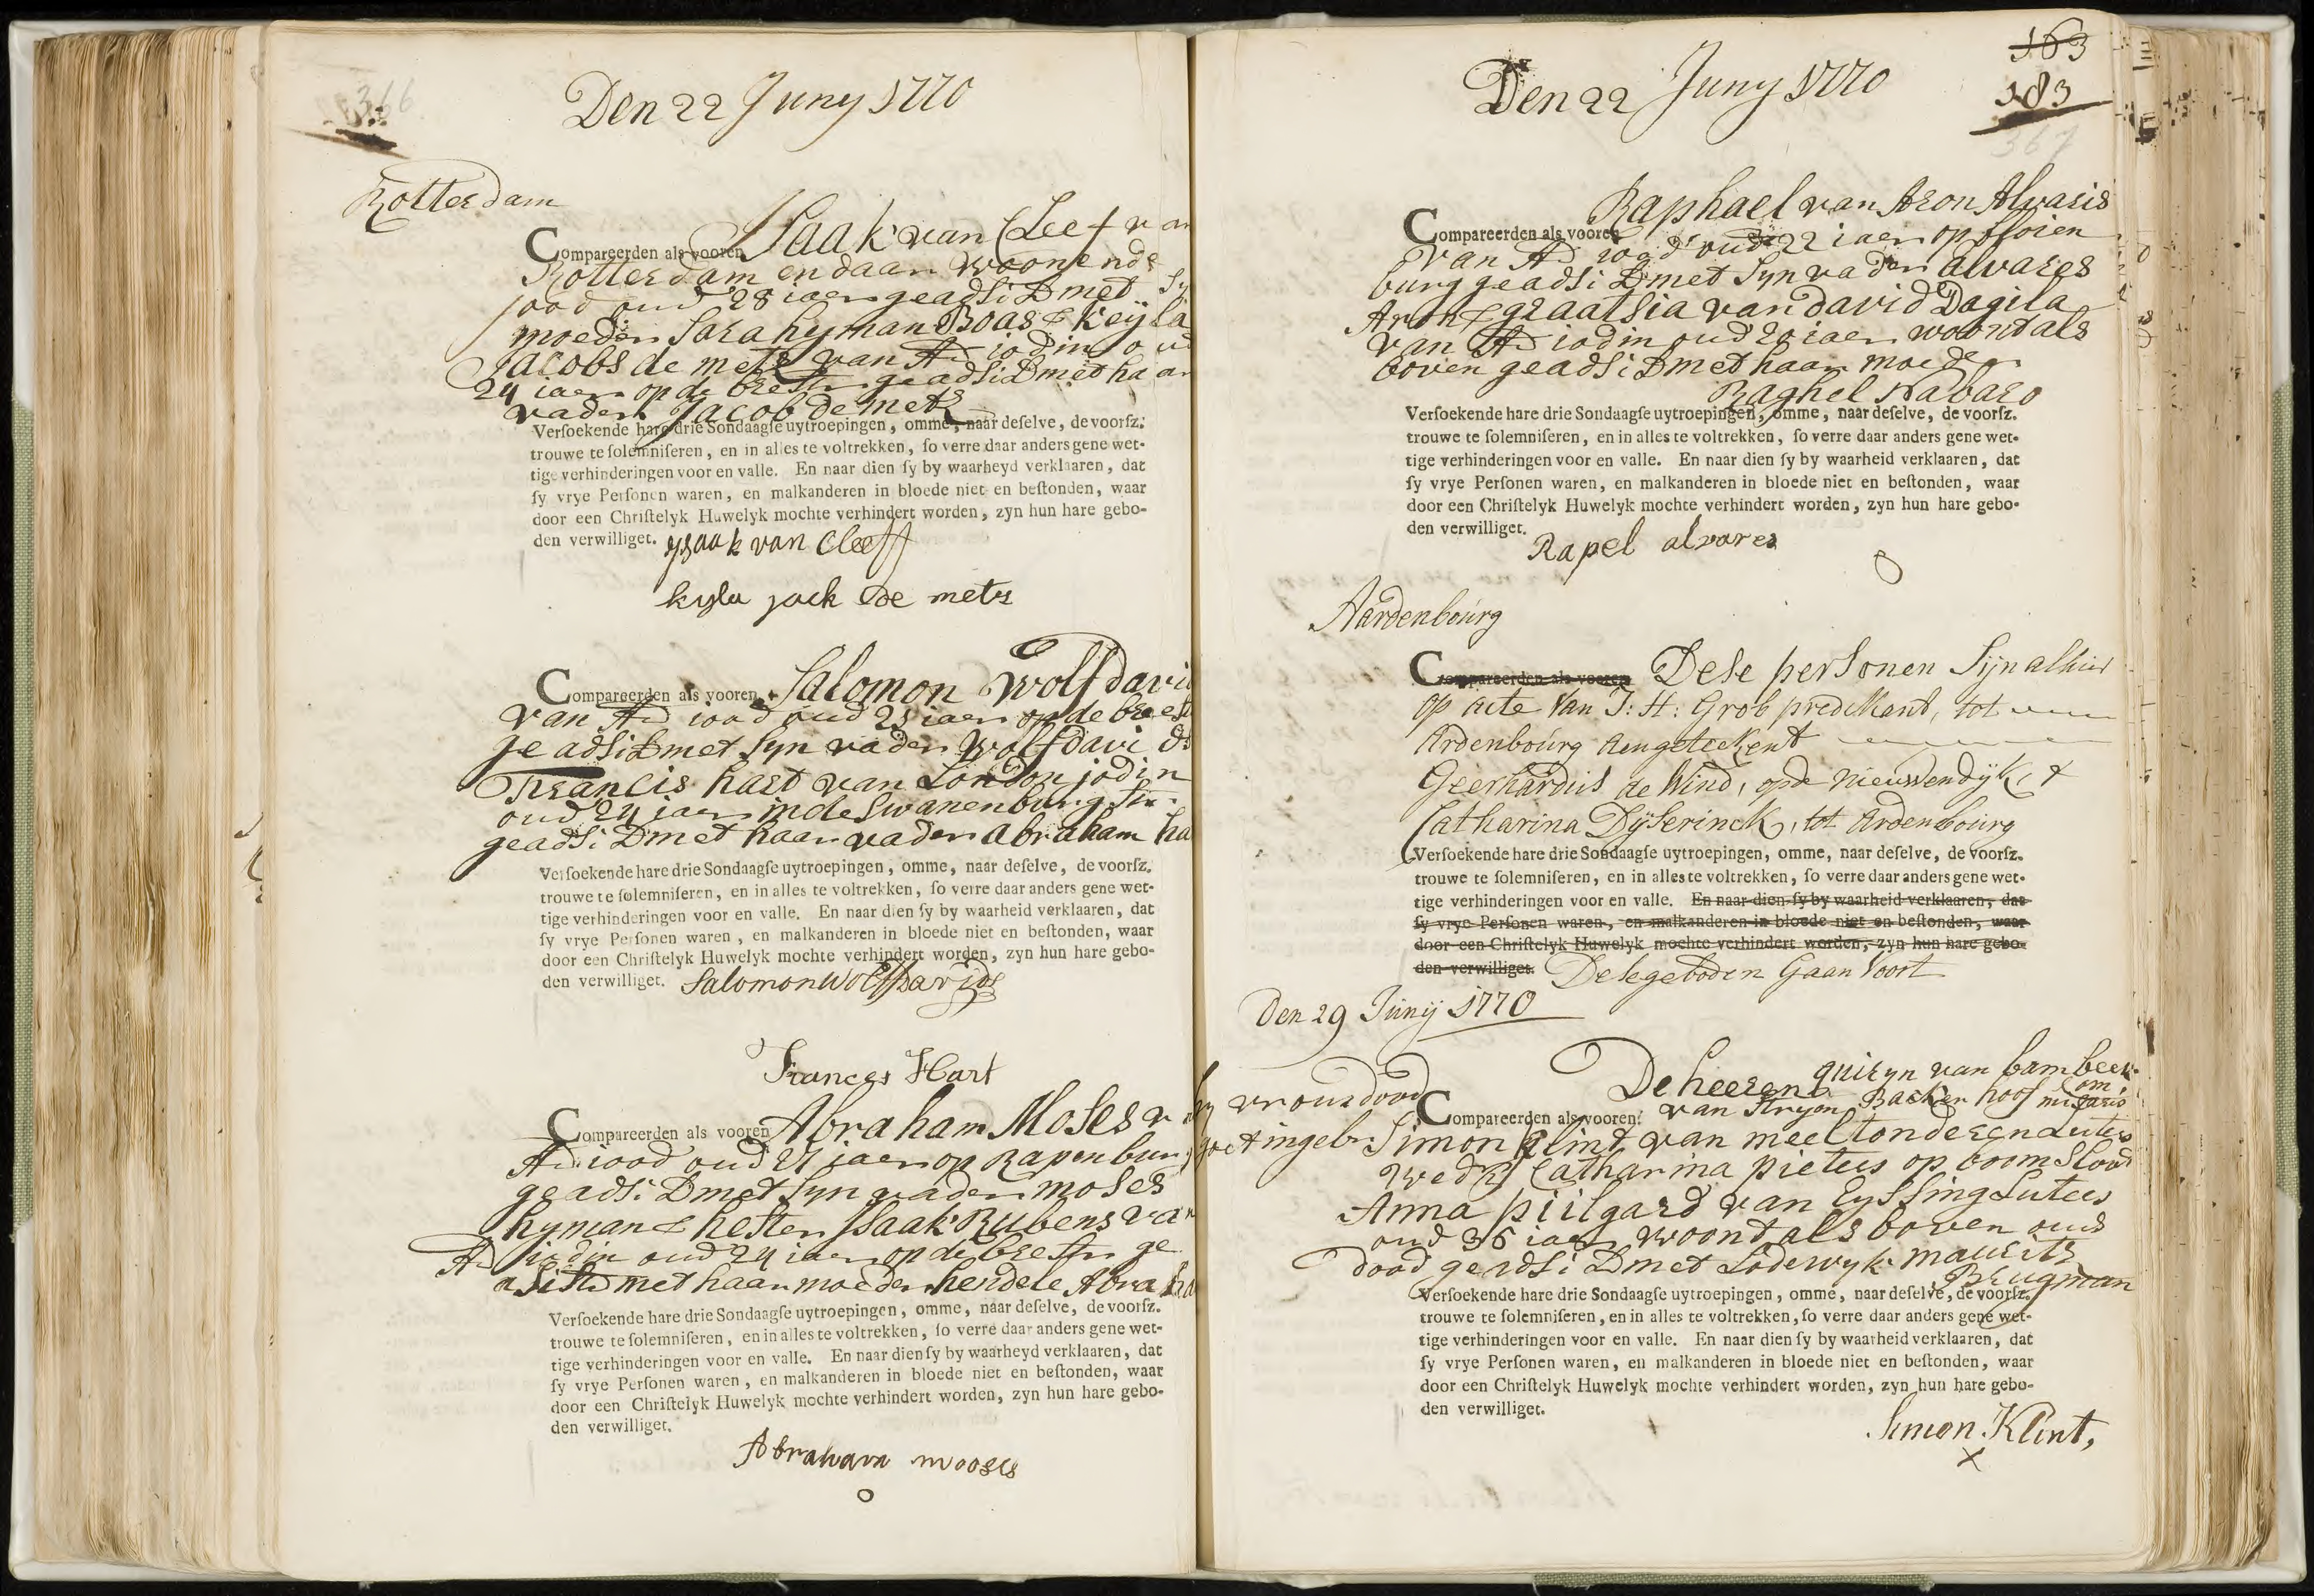 366
Den 22 Juny 1770
Rotterdam
Compareerden als vooren Isaak van Cleef van
Rotterdam en daar woonende
jood oud 28 iaer geadsist met sy
moeder Sara hyman Boas & Keyla
Jacobs de mets van Ad iodin oud
24 iaer op de breestr geadsist met haar
vader Jacob de mets
Versoekende hare drie Sondaagse uytroepingen, omme, naar deselve, de voorsz.
trouwe te solemniseren, en in alles te voltrekken, so verre daar anders gene wet-
tige verhinderingen voor en valle. En naar dien sy by waarheyd verklaaren, dat
sy vrye Personen waren, en malkanderen in bloede niet en bestonden, waar
door een Christelyk Huwelyk mochte verhindert worden, zyn hun hare gebo-
den verwilliget. ysaak van Cleeff
kyla jack de mets
Compareerden als vooren Salomon Wolf david
van Ad iood oud 23 iaer op de breest
geadsist met syn vader Wolf davids
Francis hart van London jodin
oud 24 iaer in de Swanenburg str
geadsist met haar vader abraham ha
Versoekende hare drie Sondaagse uytroepingen, omme, naar deselve, de voorsz.
trouwe te solemniseren, en in alles te voltrekken, so verre daar anders gene wet-
tige verhinderingen voor en valle. En naar dien sy by waarheid verklaaren, dat
sy vrye Personen waren, en malkanderen in bloede niet en bestonden, waar
door een Christelyk Huwelyk mochte verhindert worden, zyn hun hare gebo-
den verwilliget. Salomon Wolf Davids
Frances Hart
Compareerden als vooren Abraham Moses v
Ad iood oud 21 iaer op Rapenburg
geadsist met syn vader moses
hyman & hester Isaak Rubens van
Ad iodin oud 24 iaer op de breestr ge
asist met haar moeder hendele Abraha
Versoekende hare drie Sondaagse uytroepingen, omme, naar deselve, de voorsz.
trouwe te solemniseren, en in alles te voltrekken, so verre daar anders gene wet-
tige verhinderingen voor en valle. En naar dien sy by waarheyd verklaaren, dat
sy vrye Personen waren, en malkanderen in bloede niet en bestonden, waar
door een Christelyk Huwelyk mochte verhindert worden, zyn hun hare gebo-
den verwilliget.
Abraham mooses
o
Den 22 Juny 1770
163
183
367
Raphael van Aron Alvaris
Compareerden als vooren
van Ad iood oud 22 iaer op floien
burg geadsist met syn vader alvares
Aron & graatsia van david Dagila
van Ad iodin oud 20 iaer woont als
boven geadsist met haar moeder
Raghel Nabaro
Versoekende hare drie Sondaagse uytroepingen, omme, naar deselve, de voorsz.
trouwe te solemniseren, en in alles te voltrekken, so verre daar anders gene wet-
tige verhinderingen voor en valle. En naar dien sy by waarheid verklaaren, dat
sy vrye Personen waren, en malkanderen in bloede niet en bestonden, waar
door een Christelyk Huwelyk mochte verhindert worden, zyn hun hare gebo-
den verwilliget.
Rapel alvares
o
Aardenbourg
Compareerden als vooren Dese personen Sijn alhier
op acte Van J: H: Grob predikant, tot
Ardenbourg Aengeteekent
Geerhardus de Wind, op de Nieuwendijk, &
Catharina Dijserinck, tot Ardenbourg
Versoekende hare drie Sondaagse uytroepingen, omme, naar deselve, de voorsz.
trouwe te solemniseren, en in alles te voltrekken, so verre daar anders gene wet-
tige verhinderingen voor en valle. En naar dien sy by waarheid verklaaren, dat
sy vrye Personen waren, en malkanderen in bloede niet en bestonden, waar
door een Christelyk Huwelyk mochte verhindert worden, zyn hun hare gebo-
den verwilliget. Dese geboden Gaan Voort
Den 29 Junij 1770
De heeren quiryn van bambeek
vrous dood
Compareerden als vooren van Aryon Backer hoof comisaris
Simon Klint van meeltonderen Luters
wedr Catharina pieters op boomsloot
Anna piilgard van Eyssing Luters
oud 36 iaer woont als boven ouds
dood geadsist met Lodewyk maurits
Brugman
Versoekende hare drie Sondaagse uytroepingen, omme, naar deselve, de voorsz.
trouwe te solemniseren, en in alles te voltrekken, so verre daar anders gene wet-
tige verhinderingen voor en valle. En naar dien sy by waarheid verklaaren, dat
sy vrye Personen waren, en malkanderen in bloede niet en bestonden, waar
door een Christelyk Huwelyk mochte verhindert worden, zyn hun hare gebo-
den verwilliget.
Simon Klint,
x